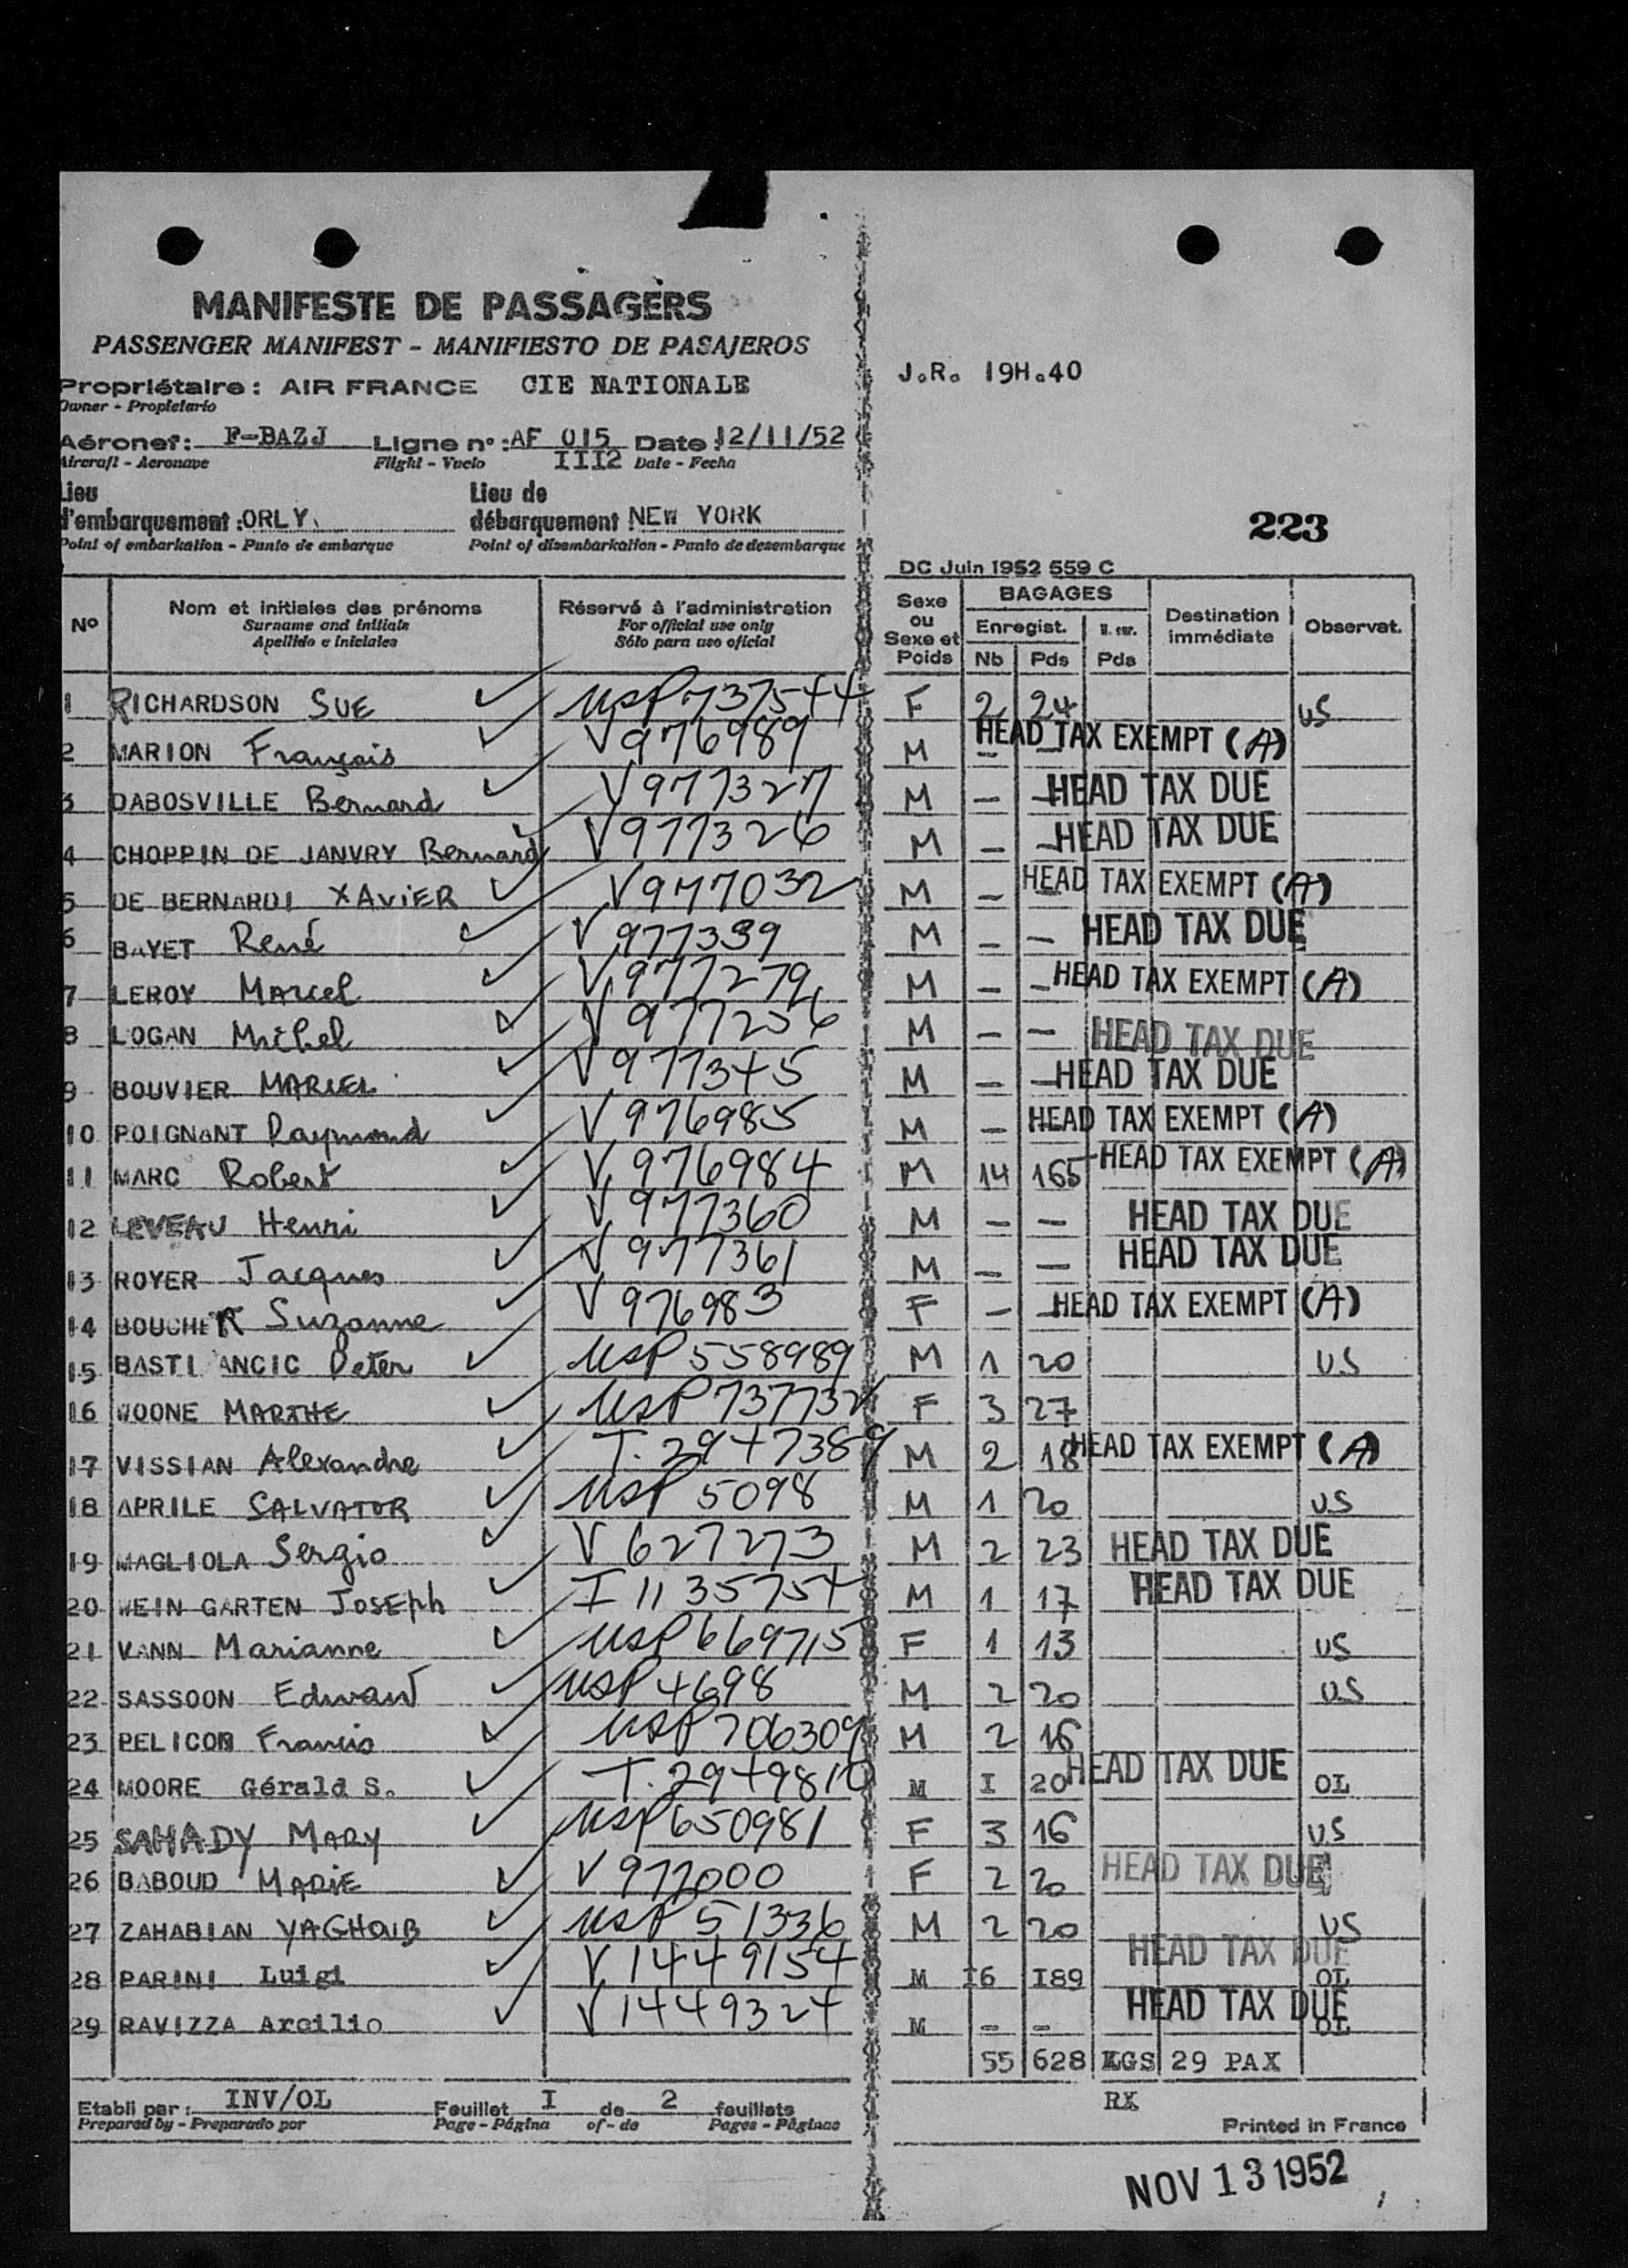 MANIFESTE DE PASSAGERS
PASSENGER MANIFEST - MANIFIESTO DE PASAJEROS
Propriétaire : AIR FRANCE CIE NATIONALE
Owner - Propietario
J.R. 19H.40
Aéronef: F-BAZJ Ligne n° : AF 015 Date 12/11/52
Aircraft - Aeronave Flight - Vuelo III2 Date - Fecha
Lieu d'embarquement : ORLY. Lieu de débarquement NEW YORK
Point of embarkation - Punto de embarque Point of disembarkation - Punto de desembarque
223
DC Juin 1952 559 C
N° Nom et initiales des prénoms Réservé à l'administration Sexe ou Sexe et Poids BAGAGES Destination immédiate Observat.
Surname and initials For official use only Enregist.
Apellido e iniciales Sólo para uso oficial Nb Pds Pds
1 RICHARDSON SUE USP 737544 F 2 24 US
2 MARION François V 976989 M - - HEAD TAX EXEMPT (A)
3 DABOSVILLE Bernard V 977327 M - - HEAD TAX DUE
4 CHOPPIN DE JANVRY Bernard V 977326 M - - HEAD TAX DUE
5 DE BERNARDI XAVIER V 977032 M - - HEAD TAX EXEMPT (A)
6 BAYET René V 977339 M - - HEAD TAX DUE
7 LEROY Marcel V 977279 M - - HEAD TAX EXEMPT (A)
8 LOGAN Michel V 977256 M - - HEAD TAX DUE
9 BOUVIER MARCEL V 977345 M - - HEAD TAX DUE
10 POIGNANT Raymond V 976985 M - HEAD TAX EXEMPT (A)
11 MARC Robert V 976984 M 14 165 HEAD TAX EXEMPT (A)
12 LEVEAU Henri V 977360 M - - HEAD TAX DUE
13 ROYER Jacques V 977361 M - - HEAD TAX DUE
14 BOUCHER Suzanne V 976983 F - - HEAD TAX EXEMPT (A)
15 BASTI ANCIC Peter USP 558989 M 1 20 US
16 WOONE MARTHE USP 737732 F 3 27
17 VISSIAN Alexandre T. 2947389 M 2 18 HEAD TAX EXEMPT (A)
18 APRILE SALVATOR USP 5098 M 1 20 US
19 MAGLIOLA Sergio V 627273 M 2 23 HEAD TAX DUE
20 WEIN GARTEN JOSEPh I 1135754 M 1 17 HEAD TAX DUE
21 VANN Marianne USP 669715 F 1 13 US
22 SASSOON Edward USP 4698 M 2 20 US
23 PELICON Francis USP 706309 M 2 16
24 MOORE Gérald S. T. 2949810 M I 20 HEAD TAX DUE OL
25 SAHADY MARY USP 650981 F 3 16 US
26 BABOUD MARIE V 977000 F 2 20 HEAD TAX DUE
27 ZAHABIAN YAGHOUB USP 51336 M 2 20 US
28 PARINI Luigi V 1449154 M I6 I89 HEAD TAX DUE OL
29 RAVIZZA Arcilio V 1449324 M - - HEAD TAX DUE OL
55 628 KGS 29 PAX
Etabli par : INV/OL Feuillet I de 2 feuillets RX
Prepared by - Preparado por Page - Página of - de Pages - Páginas Printed in France
NOV 13 1952